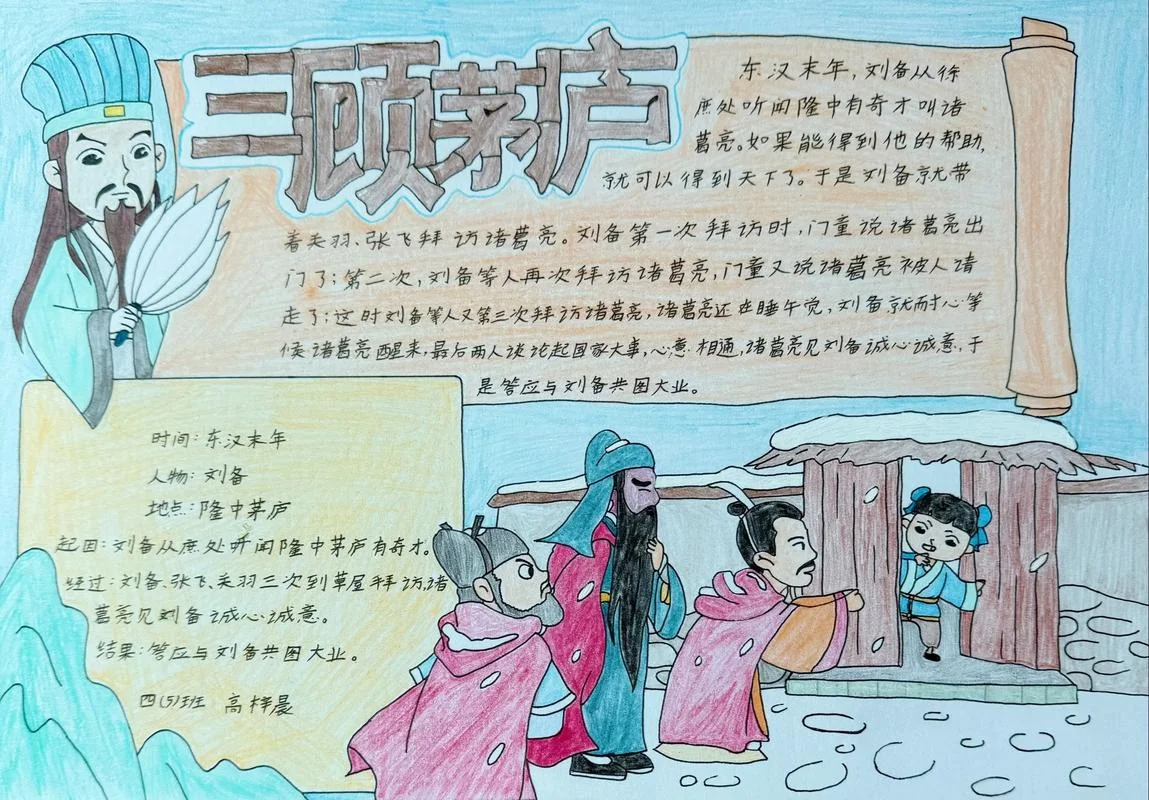 三顾茅庐
东汉末年,刘备从徐
庶处听闻隆中有奇才叫诸
葛亮。如果能得到他的帮助,
就可以得到天下了。于是刘备就带
着关羽、张飞拜访诸葛亮。刘备第一次拜访时,门童说诸葛亮出
门了;第二次,刘备等人再次拜访诸葛亮,门童又说诸葛亮被人请
走了;这时刘备等人又第三次拜访诸葛亮,诸葛亮还在睡午觉,刘备就耐心等
候诸葛亮醒来,最后两人谈论起国家大事,心意相通,诸葛亮见刘备诚心诚意,于
是答应与刘备共图大业。
时间:东汉末年
人物:刘备
地点:隆中茅庐
起因:刘备从庶处听闻隆中茅庐有奇才。
经过:刘备、张飞、关羽三次到草屋拜访,诸
葛亮见刘备诚心诚意。
结果:答应与刘备共图大业。
四(5)班 高梓晨